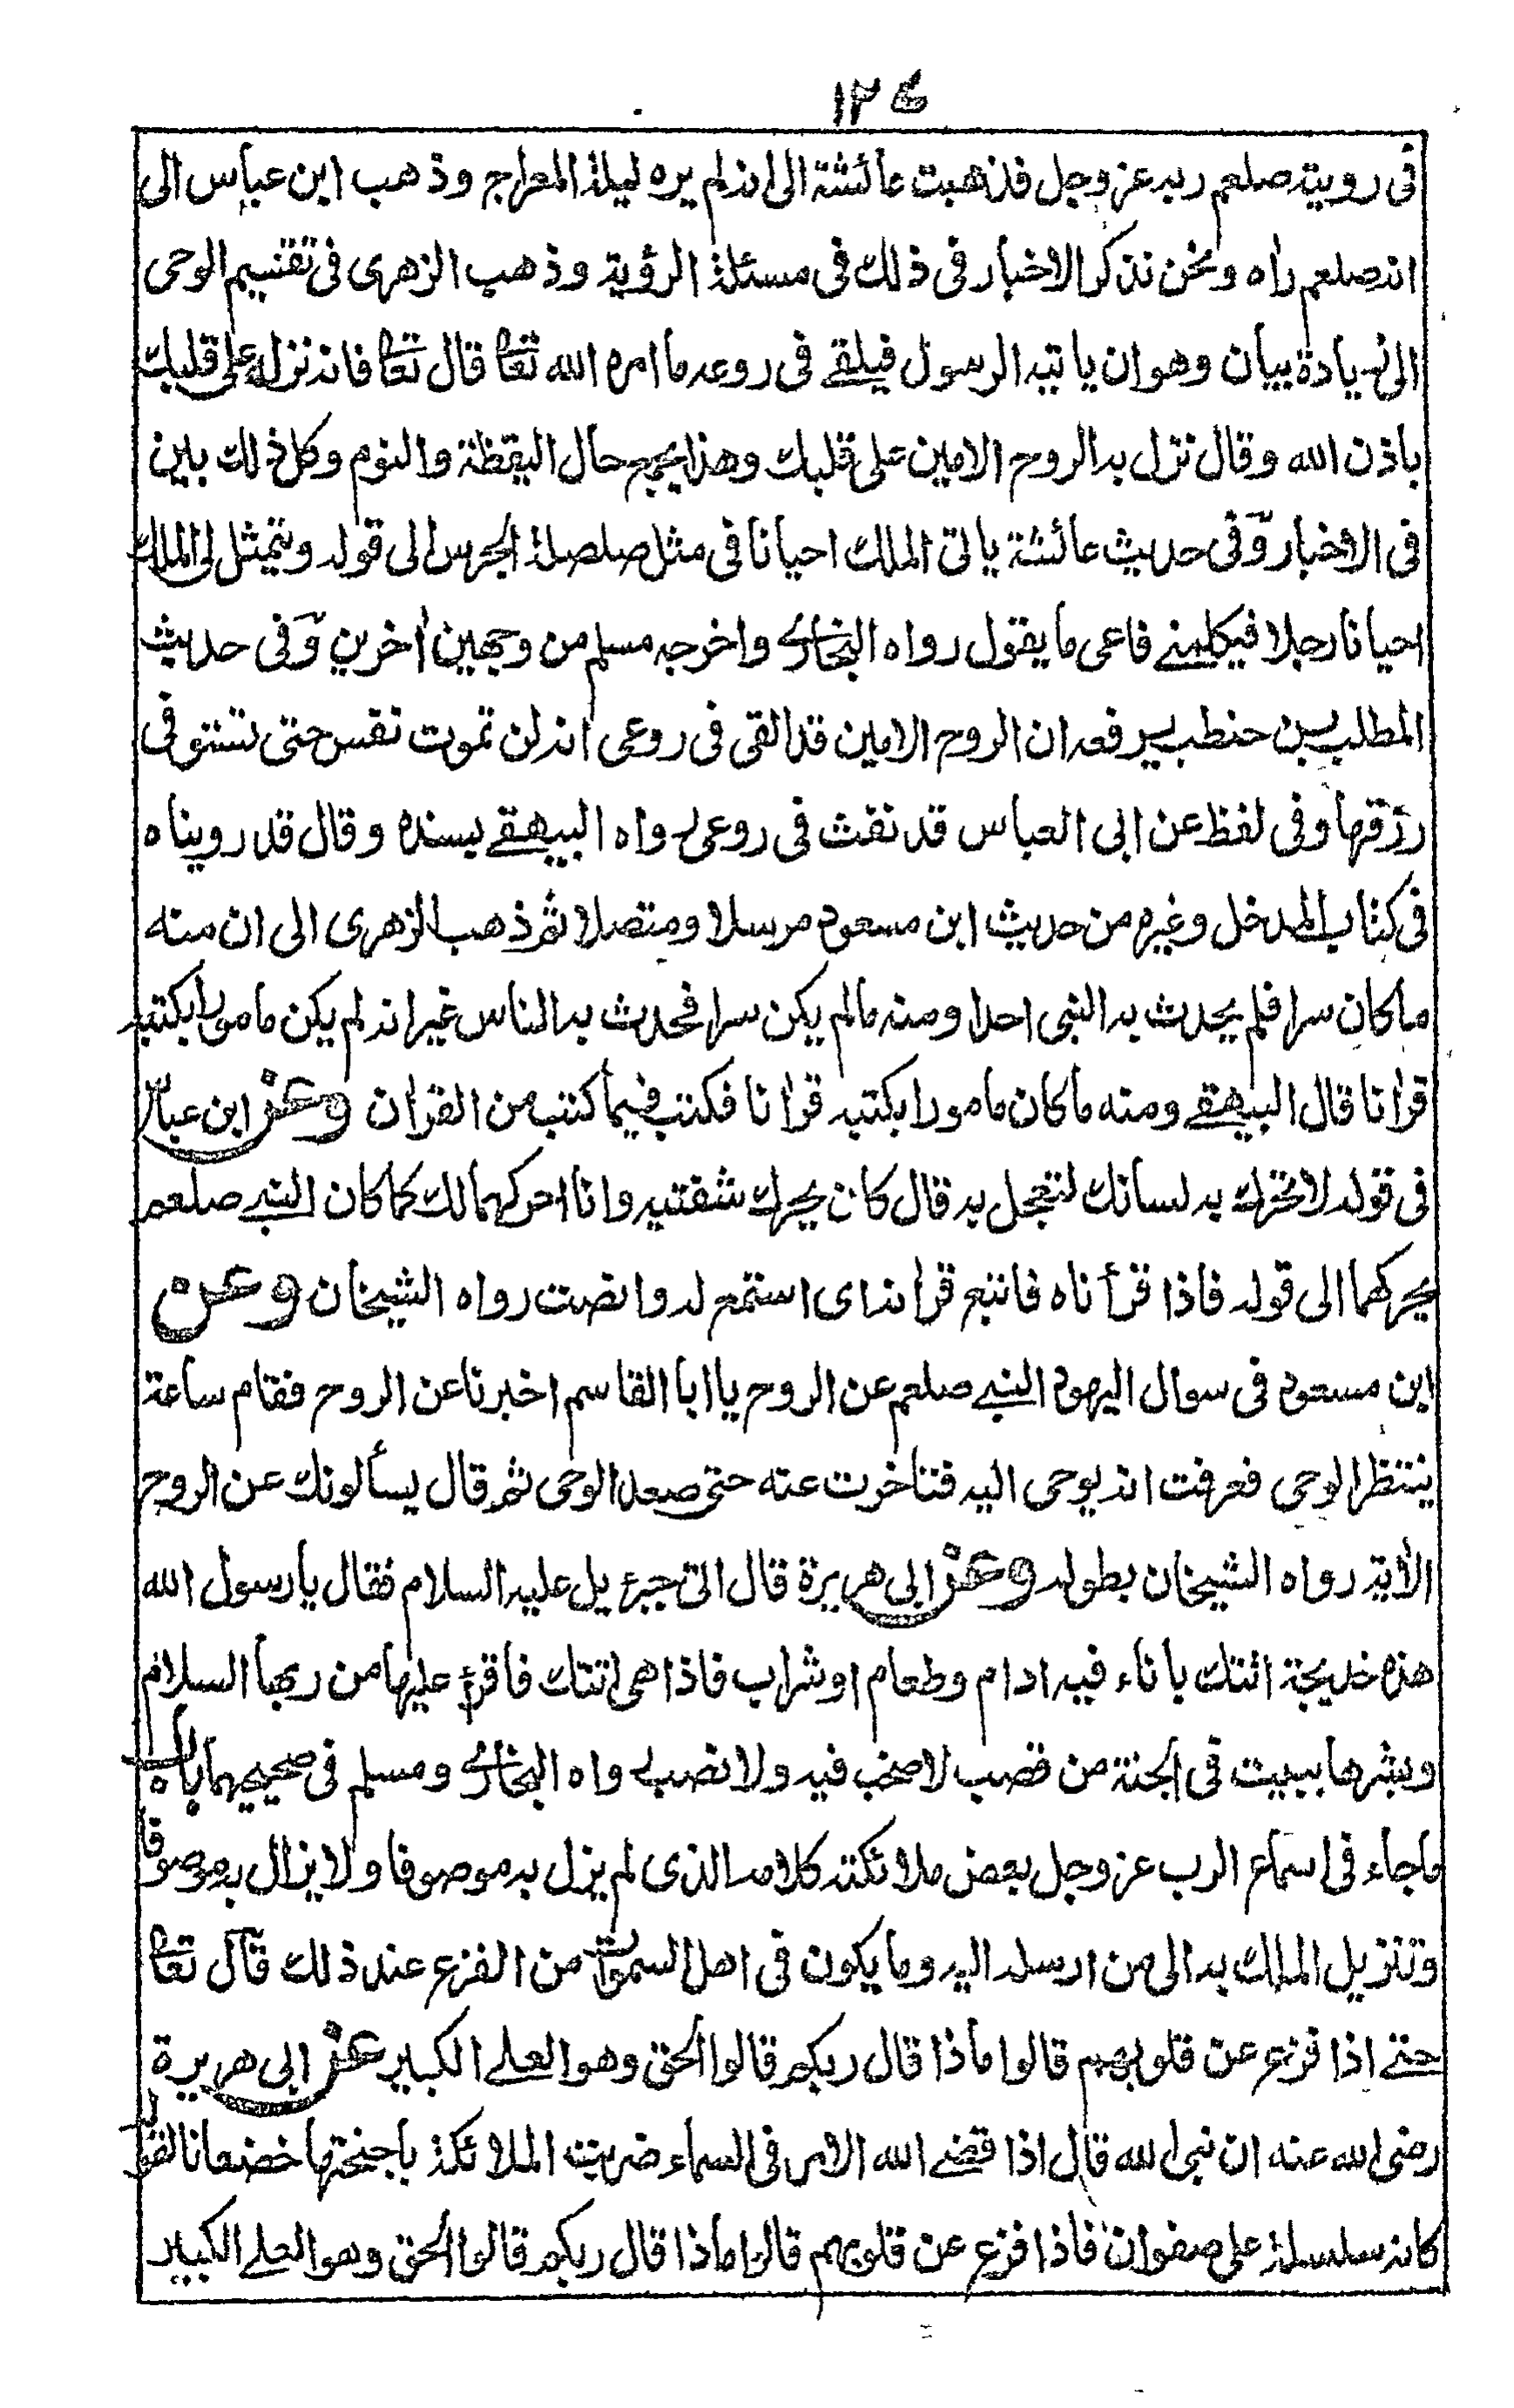 ١٢٤
فى رويته صلعم ربه عز وجل فذهبت عائشة الى انه لم يره ليلة المعراج وذهب ابن عباس الى
انه صلعم راٰه ونحن نذكر الاخبار فى ذلك فى مسئلة الرؤية وذهب الزهرى فى تقسيم الوحى
الى زيادة بيان وهو ان ياتيه الرسول فيلقے فى روعه ما امره الله تعا قال تعا فانه نزله على قلبك
باذن الله وقال نزل به الروح الامين على قلبك وهذا يجمع حال اليقظة والنوم وكل ذلك بين
فى الاخبار وفى حديث عائشة ياتى الملك احيانا فى مثل صلصلة الجرس الى قوله ويتمثل لى الملك
احيانا رجلا فيكلمنے فاعى ما يقول رواه البخارے واخرجه مسلم من وجهين اٰخرين وفى حديث
المطلب بن حنطب يرفعه ان الروح الامين قد القى فى روعى انه لن تموت نفس حتى تستوفى
رزقها وفى لفظ عن ابى العباس قد نفث فى روعى رواه البيهقے بسنده وقال قد رويناه
فى كتاب المدخل وغيره من حديث ابن مسعود مرسلا ومتصلا ثم ذهب الزهرى الى ان منه
ما كان سرا فلم يحدث به النبى احدا ومنه ما لم يكن سرا فحدث به الناس غير انه لم يكن مامورا بكتبه
قراٰنا قال البيهقے ومنه ما كان مامورا بكتبه قراٰنا فكتب فيما كتب من القراٰن وعن ابن عباس
فى قوله لا تحرك به لسانك لتعجل به قال كان يحرك شفتيه وانا احركهما لك كما كان النبے صلعم
يحركهما الى قوله فاذا قرأناه فاتبع قراٰنه اى استمع له وانصت رواه الشيخان وعن
ابن مسعود فى سوال اليهود النبے صلعم عن الروح يا ابا القاسم اخبرنا عن الروح فقام ساعة
ينتظر الوحى فعرفت انه يوحى اليه فتاخرت عنه حتى صعد الوحى ثم قال يسألونك عن الروح
الاٰية رواه الشيخان بطوله وعن ابى هريرة قال اتى جبرئيل عليه السلام فقال يا رسول الله
هذه خديجة اتتك باناء فيه ادام وطعام او شراب فاذا هى اتتك فاقرئ عليها من ربها السلام
وبشرها ببيت فى الجنة من قصب لا صخب فيه ولا نصب رواه البخارے ومسلم فى صحيحيهما باب
ما جاء فى اسماع الرب عز وجل بعض ملائكته كلامه الذى لم يزل به موصوفا ولا يزال به موصوفا
وتنزيل الملك به الى من ارسله اليه وما يكون فى اهل السموات من الفزع عند ذلك قال تعا
حتے اذا فزع عن قلوبهم قالوا ماذا قال ربكم قالوا الحق وهو العلے الكبير عن ابى هريرة
رضى الله عنه ان نبى الله قال اذا قضے الله الامر فى السماء ضربت الملائكة باجنحتها خضعانا لقوله
كانه سلسلة على صفوان فاذا فزع عن قلوبهم قالوا ماذا قال ربكم قالوا الحق وهو العلے الكبير